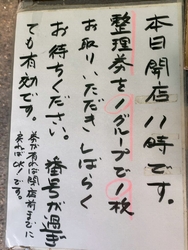 本日開店11時です。
整理券を1グループで1枚
お取りいただきしばらく
お待ちください。
番号が過ぎ
ても有効です。
券が有れば開店前までに
戻ればOK!です。